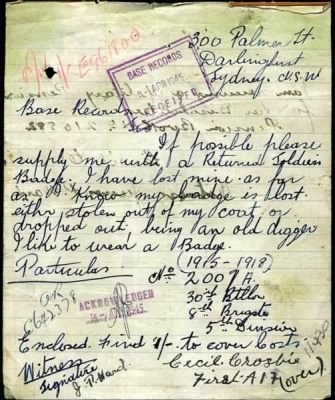 300 Palmer St.
Darlinghurst
Sydney. N.S.W
BASE RECORDS
Base Records
If possible please
supply me with a Returned Soldiers
Badge. I have lost mine as far
as I know my badge is lost.
either stolen out of my coat, or
dropped out. being an old digger
I like to wear a Badge.
Particulars. (1915-1918)
No 2007 A.
30th Btllon
8th Brigate
5th Divsion
ACKNOWLEDGED
Enclosed find 1/- to cover Costs
Witness
signature
J. P. Ward.
Cecil Crosbie
First A I F (over)